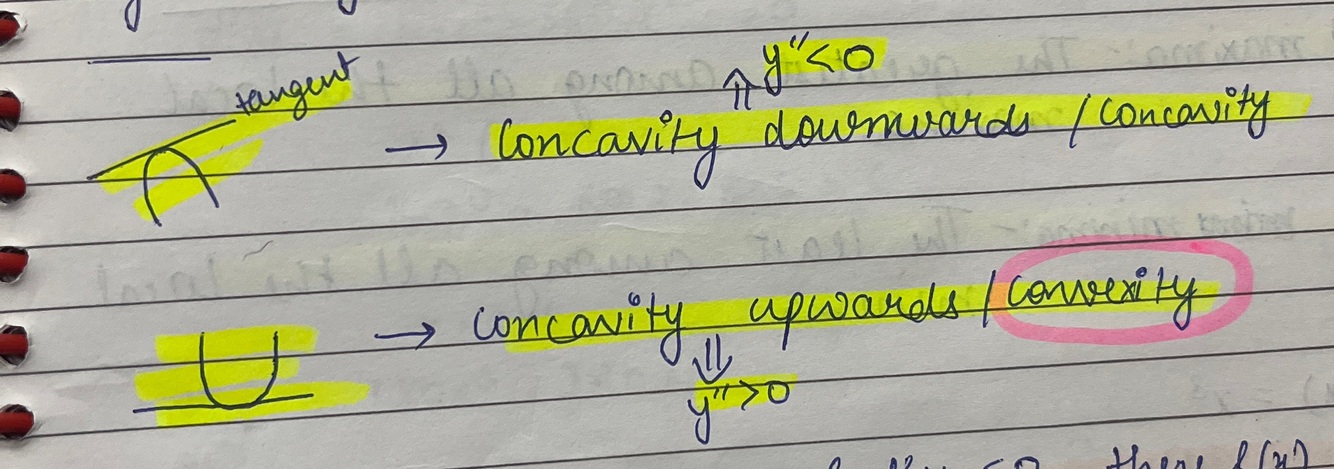 y" < 0
tangent
→ Concavity downwards / Concavity
→ Concavity upwards / Convexity
y" > 0
< 0 there f(x)